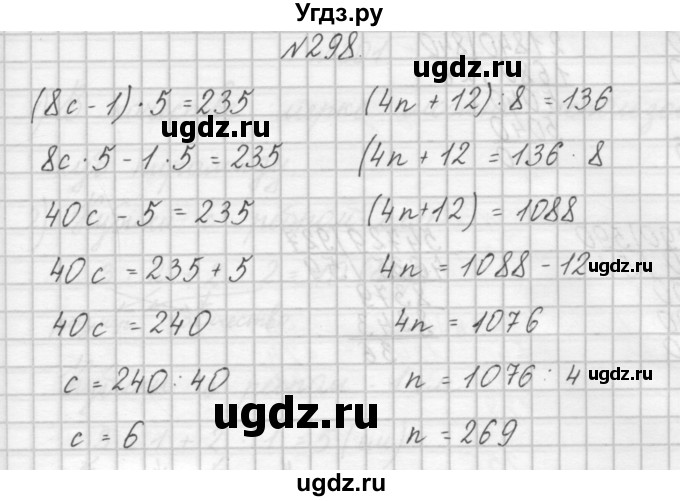 Угдз.ру
№298.
(8c - 1) · 5 = 235
8c · 5 - 1 · 5 = 235
40c - 5 = 235
40c = 235 + 5
40c = 240
c = 240 : 40
c = 6
(4n + 12) : 8 = 136
(4n + 12 = 136 · 8
(4n+12) = 1088
4n = 1088 - 12
4n = 1076
n = 1076 : 4
n = 269
ugdz.ru
ugdz.ru
ugdz.ru
ugdz.ru
ugdz.ru
ugdz.ru
ugdz.ru